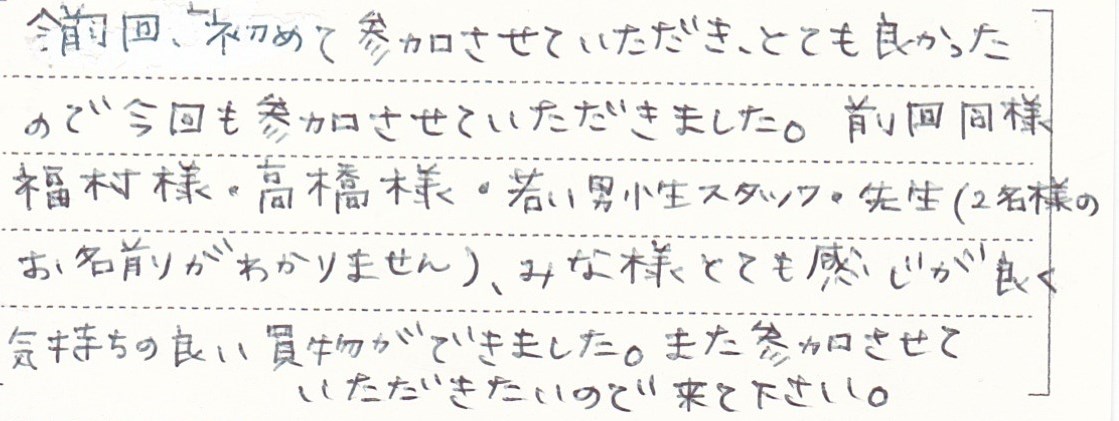 前回、初めて参加させていただき、とても良かった
ので今回も参加させていただきました。前回同様
福村様・高橋様・若い男性スタッフ・先生(2名様の
お名前がわかりません)、みな様とても感じが良く
気持ちの良い買物ができました。また参加させて
いただきたいので来て下さい。